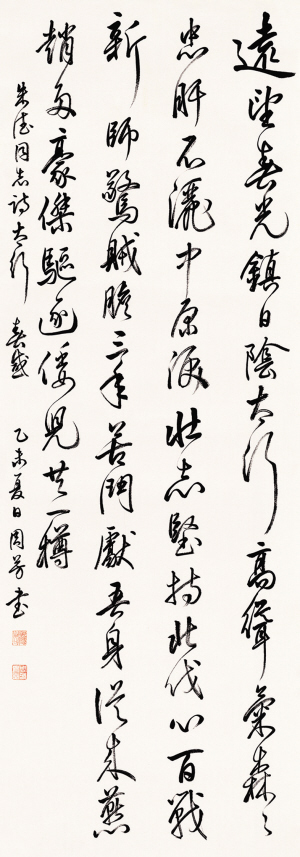 遠望春光鎮日陰太行高聳氣森〻
忠肝不灑中原淚壯志堅持北伐心百戰
新師驚賊膽三年苦鬥獻吾身從來燕
趙多豪傑驅逐倭兒共一樽
朱德同志詩太行春感 乙未夏日周芳書